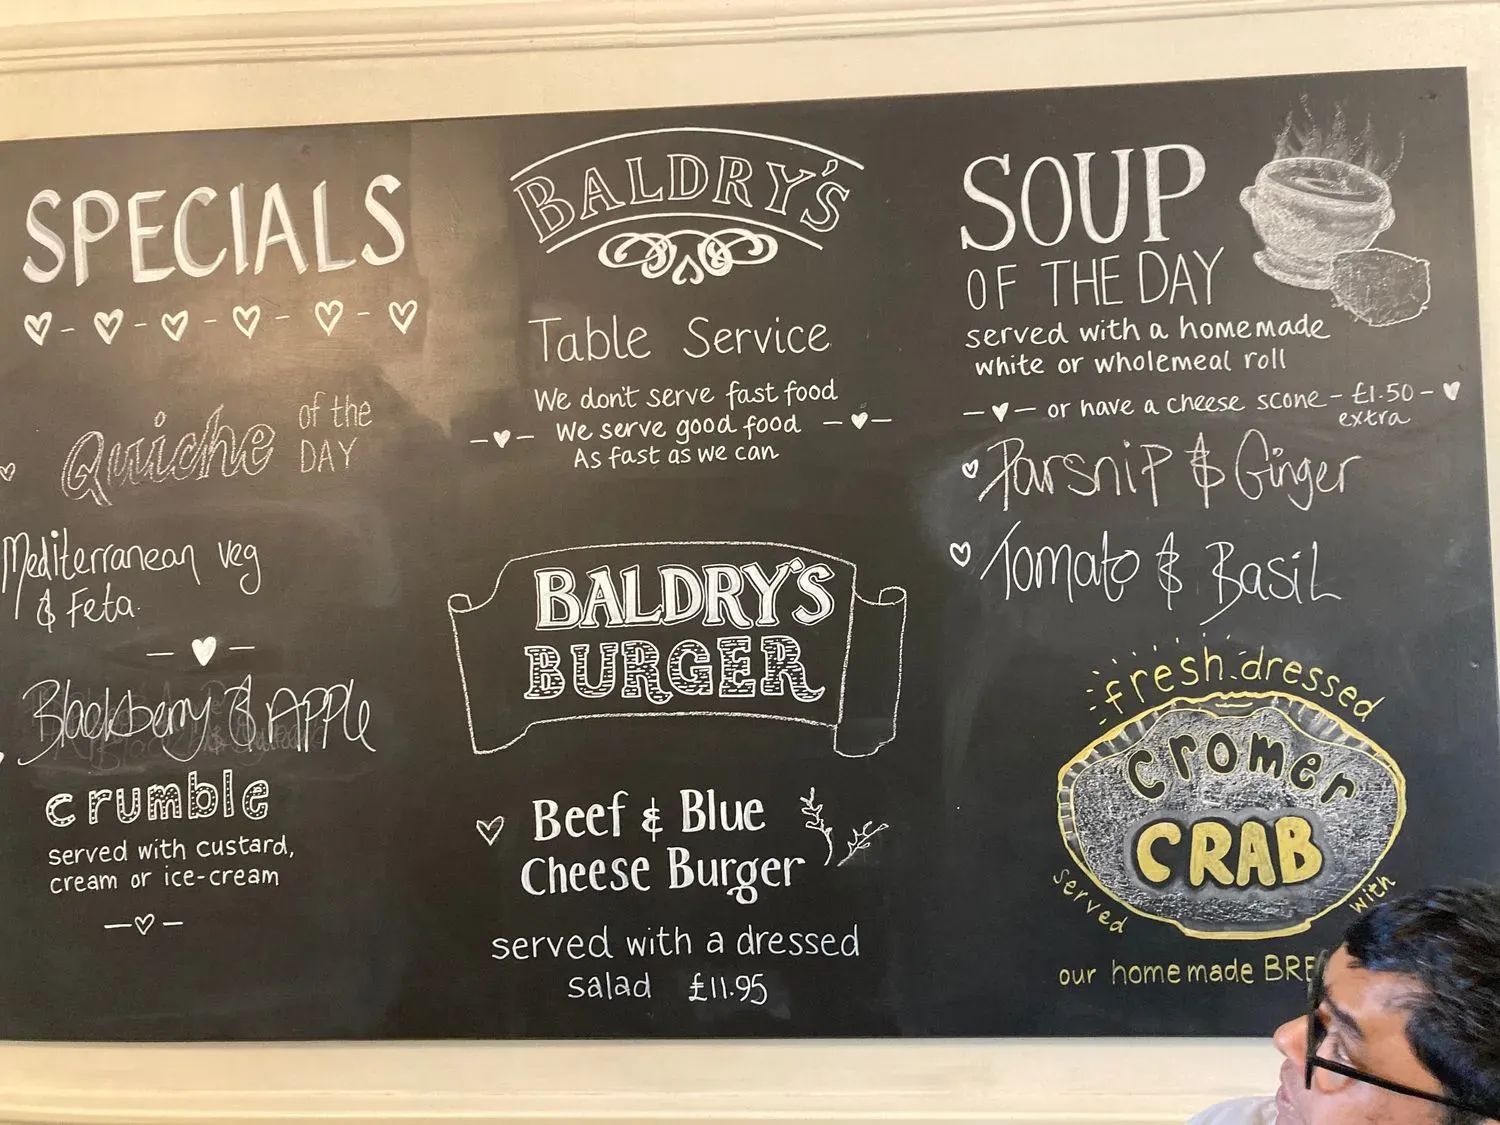 SPECIALS
Quiche of the
DAY
Mediterranean veg
& Feta.
Blackberry & APPLe
crumble
served with custard,
cream or ice-cream
BALDRY'S
Table Service
We don't serve fast food
We serve good food
As fast as we can
BALDRY'S
BURGER
Beef & Blue
Cheese Burger
served with a dressed
salad £11.95
SOUP
OF THE DAY
served with a homemade
white or wholemeal roll
or have a cheese scone - £1.50 -
extra
Parsnip & Ginger
Tomato & Basil
fresh dressed
cromer
CRAB
served with
our homemade